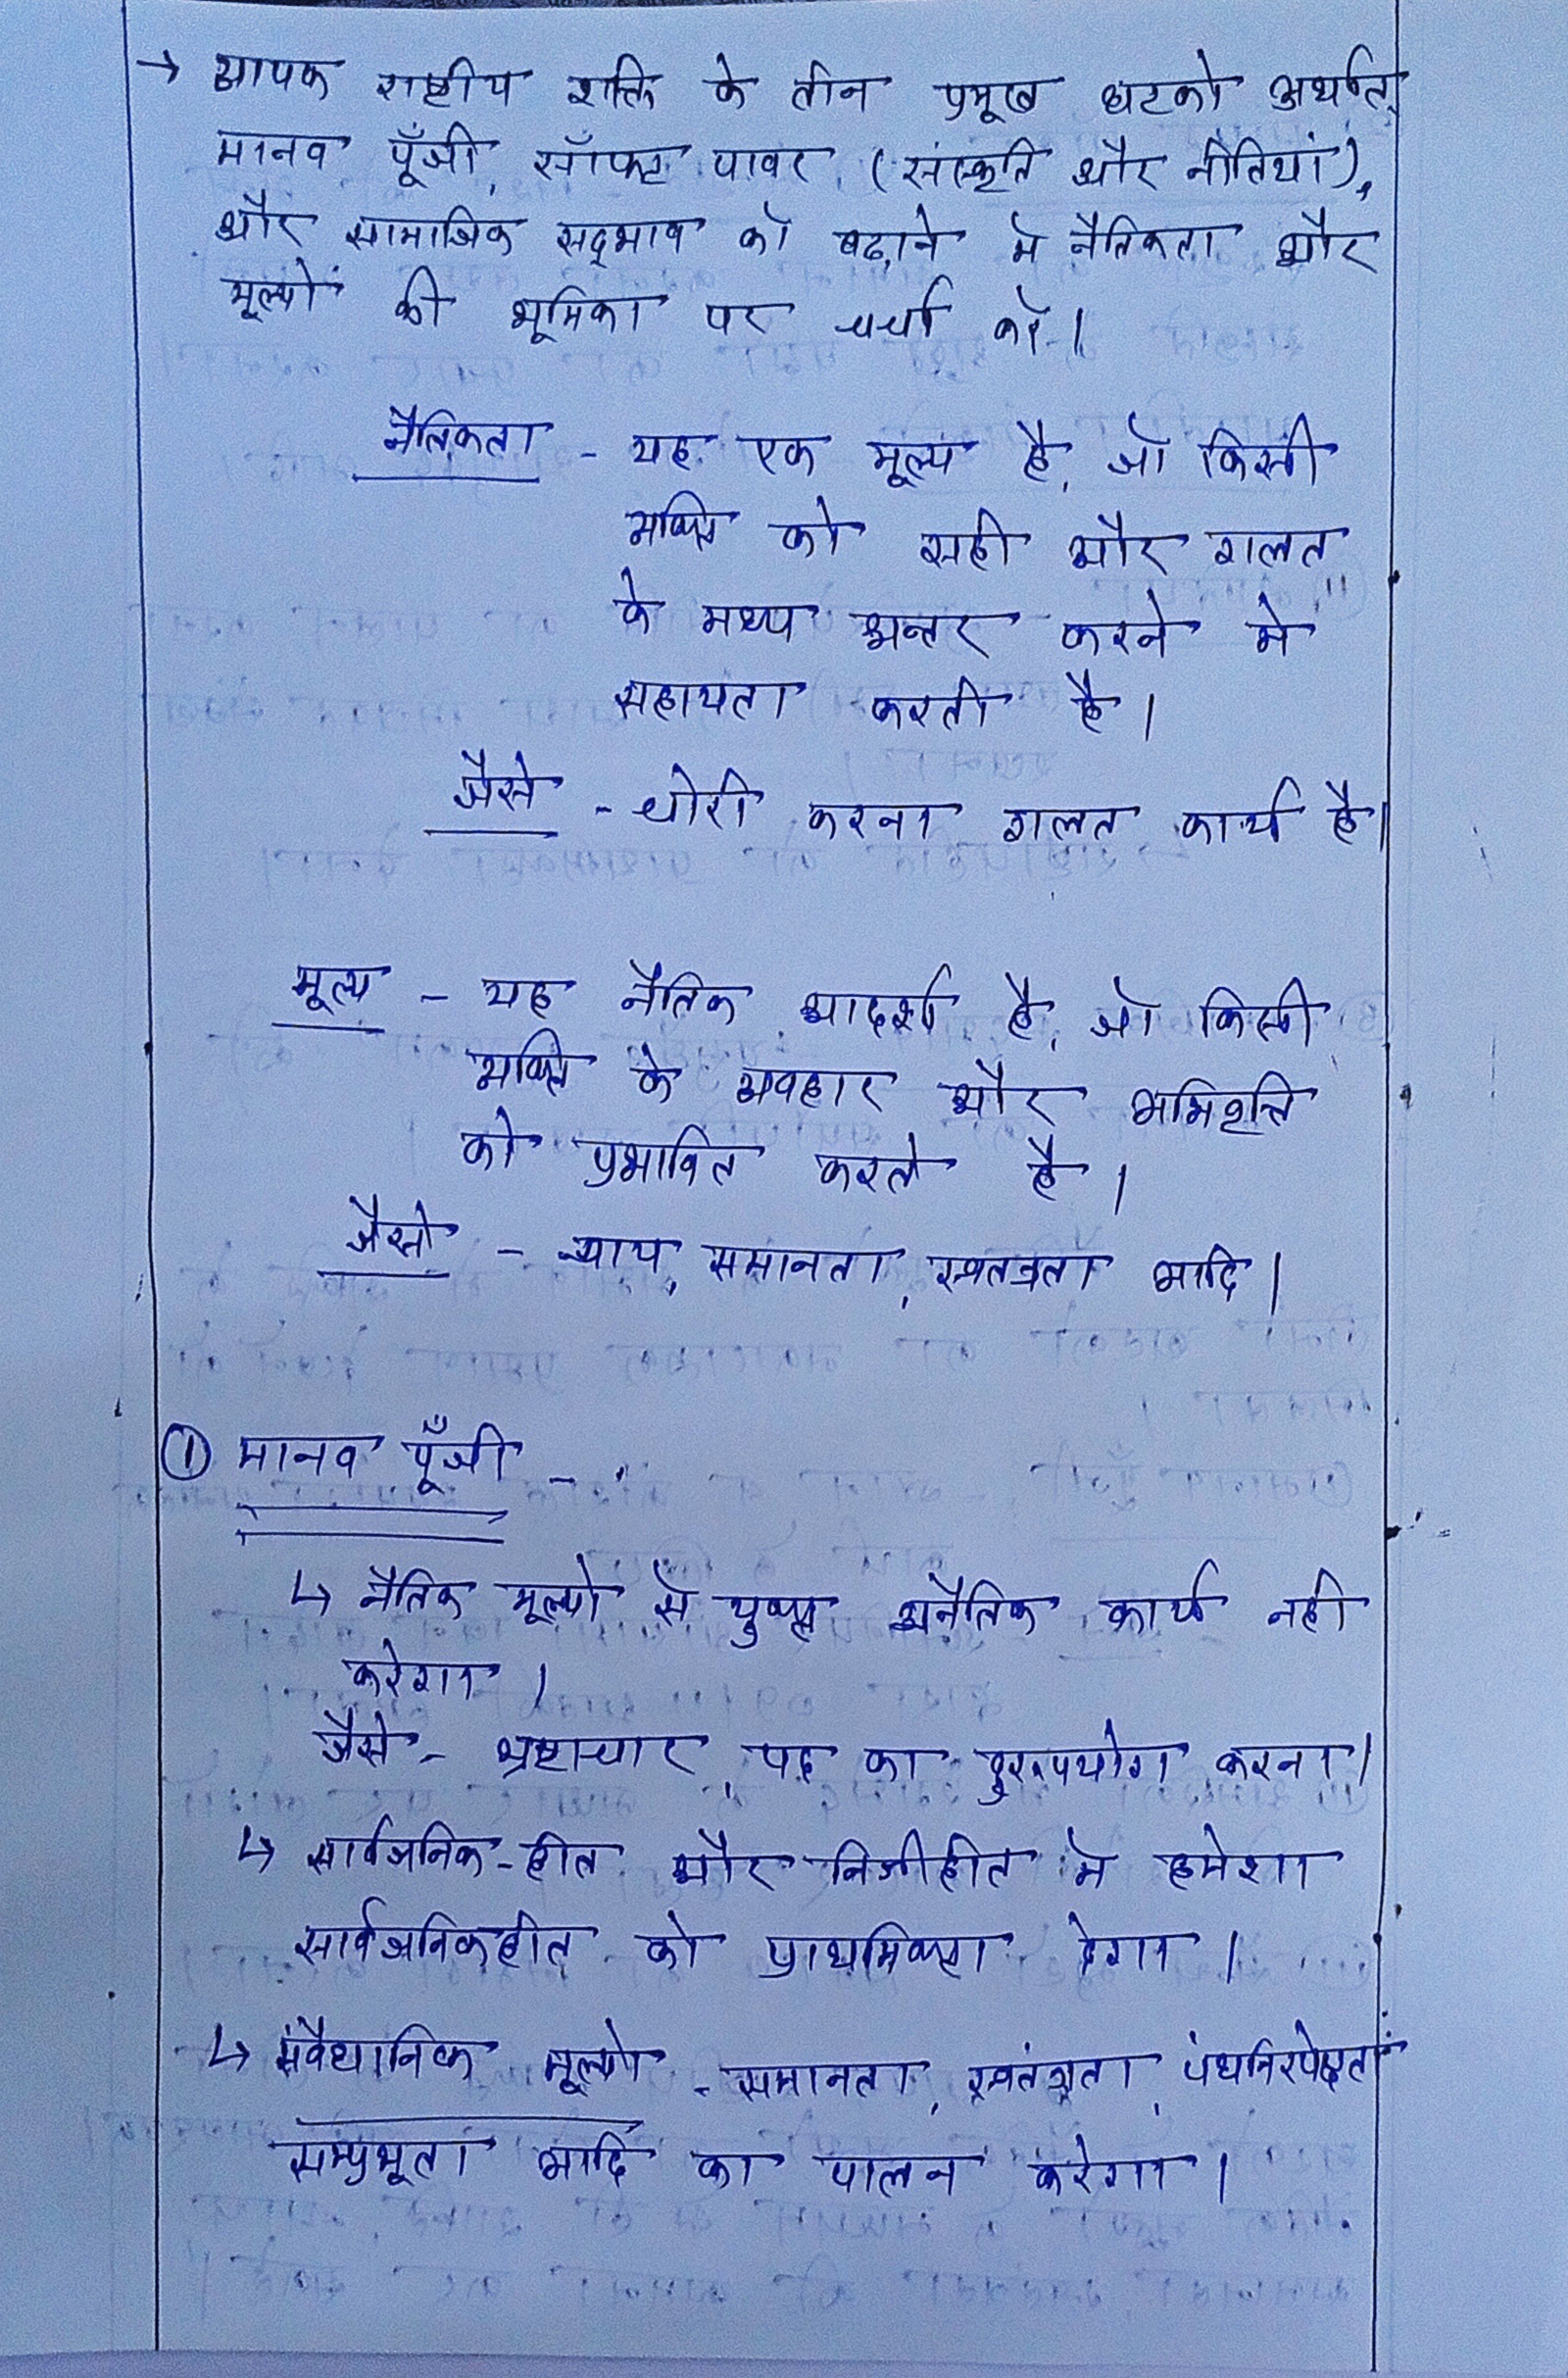 → व्यापक राष्ट्रीय शक्ति के तीन प्रमुख घटको अर्थात्
मानव पूँजी, सॉफ्ट पावर (संस्कृति और नीतियां),
और सामाजिक सद्भाव को बढ़ाने मे नैतिकता और
मूल्यों की भूमिका पर चर्चा करें।
नैतिकता - यह एक मूल्य है, जो किसी
व्यक्ति को सही और गलत
के मध्य अन्तर करने मे
सहायता करती है।
जैसे - चोरी करना गलत कार्य है।
मूल्य - यह नैतिक आदर्श है, जो किसी
व्यक्ति के व्यवहार और अभिवृत्ति
को प्रभावित करते है।
जैसे - न्याय, समानता, स्वतंत्रता आदि।
① मानव पूँजी -
↳ नैतिक मूल्यो से युक्त अनैतिक कार्य नही
करेगा।
जैसे - भ्रष्टाचार, पद का दुरूपयोग करना।
↳ सार्वजनिक-हीत और निजीहीत मे हमेशा
सार्वजनिकहीत को प्राथमिकता देगा।
↳ संवैधानिक मूल्यो - समानता, स्वतंत्रता, पंथनिरपेक्षता
सम्प्रभूता आदि का पालन करेगा।